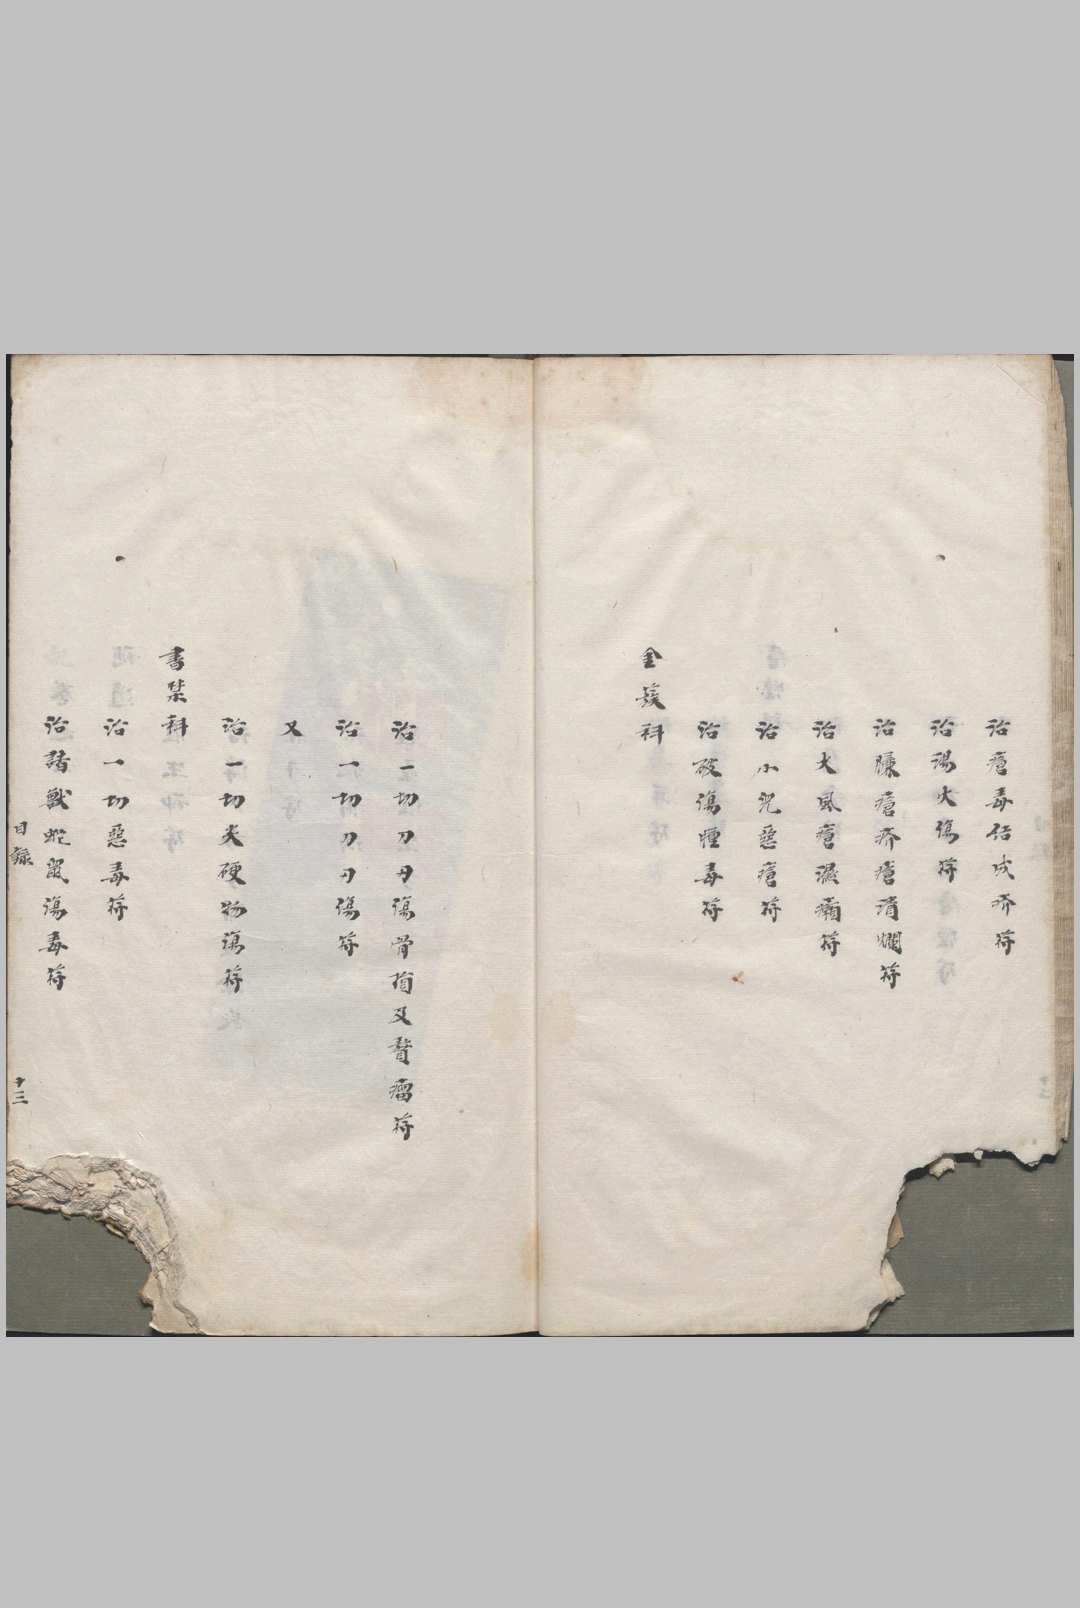 治瘡毒侶成疥符
治湯火傷符
治臁瘡疥瘡濆爛符
治大風瘡濕癩符
治小児惡瘡符
治破傷腫毒符
金簇科
治一切刀丹傷骨及瘤符
治一切刀刃傷符
又
治一切尖硬物傷符
書禁科
治一切惡毒符
治諸獸蛇鼠傷毒符
目録
十三